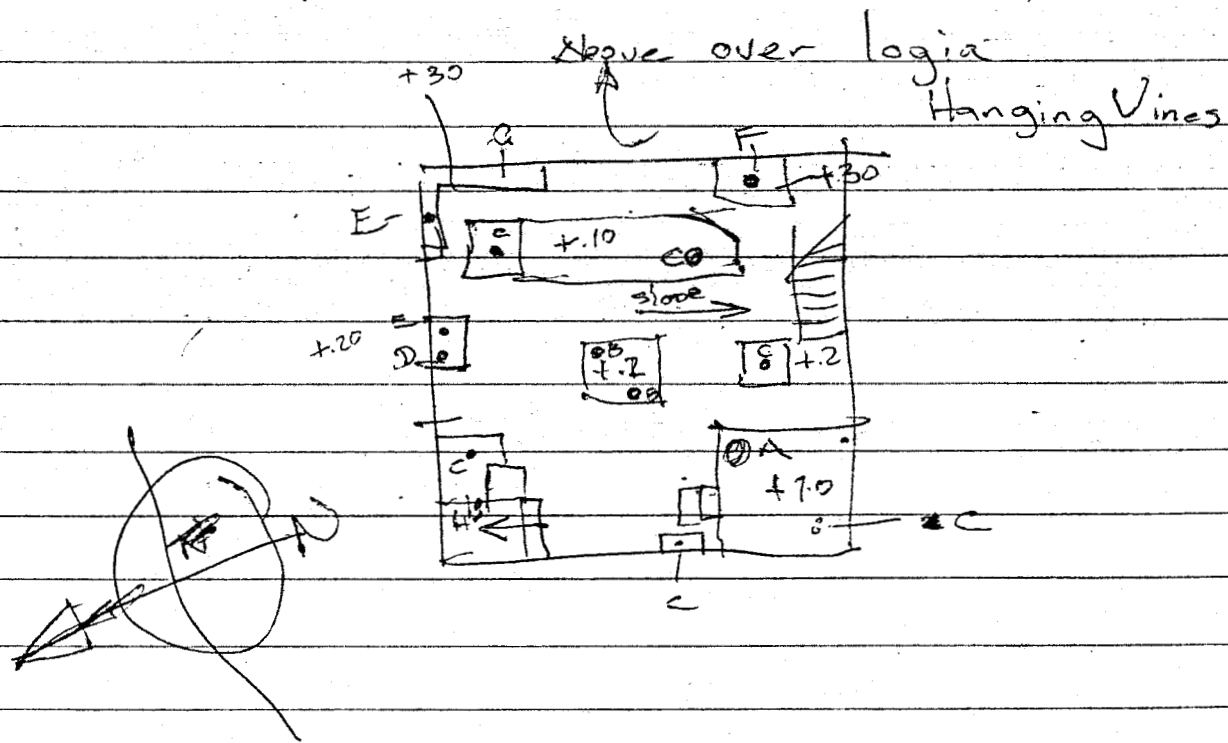 Above over logia
+30
Hanging Vines
G
F
+.30
E
C
+.10
C
slope
E
+.20
D
B
+.2
B
C
+.2
C
A
+1.0
H
C
C
N